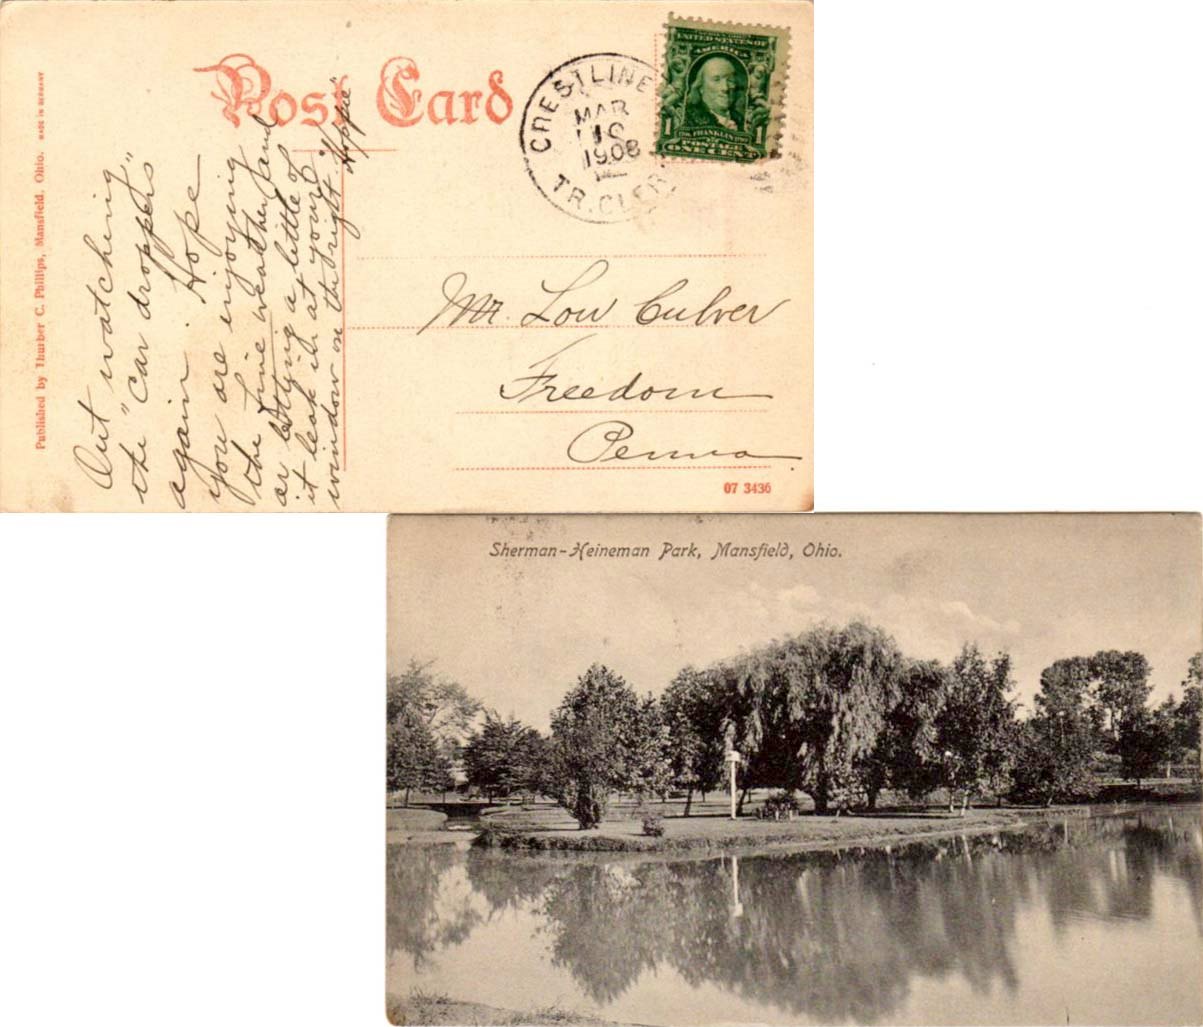 Post Card
MADE IN GERMANY
Published by Thurber C. Phillips, Mansfield, Ohio.
CRESTLINE
MAR
10
1908
TR. CLER
UNITED STATES OF
AMERICA
1 FRANKLIN 1
POSTAGE
ONE CENT
Out watching
the "car droppers"
again. Hope
you are enjoying
the fine weather and
or letting a little of
it leak in at your
window on the right.
"Hoppie"
Mr. Lou Culver
Freedom
Penna.
07 3436
Sherman-Heineman Park, Mansfield, Ohio.